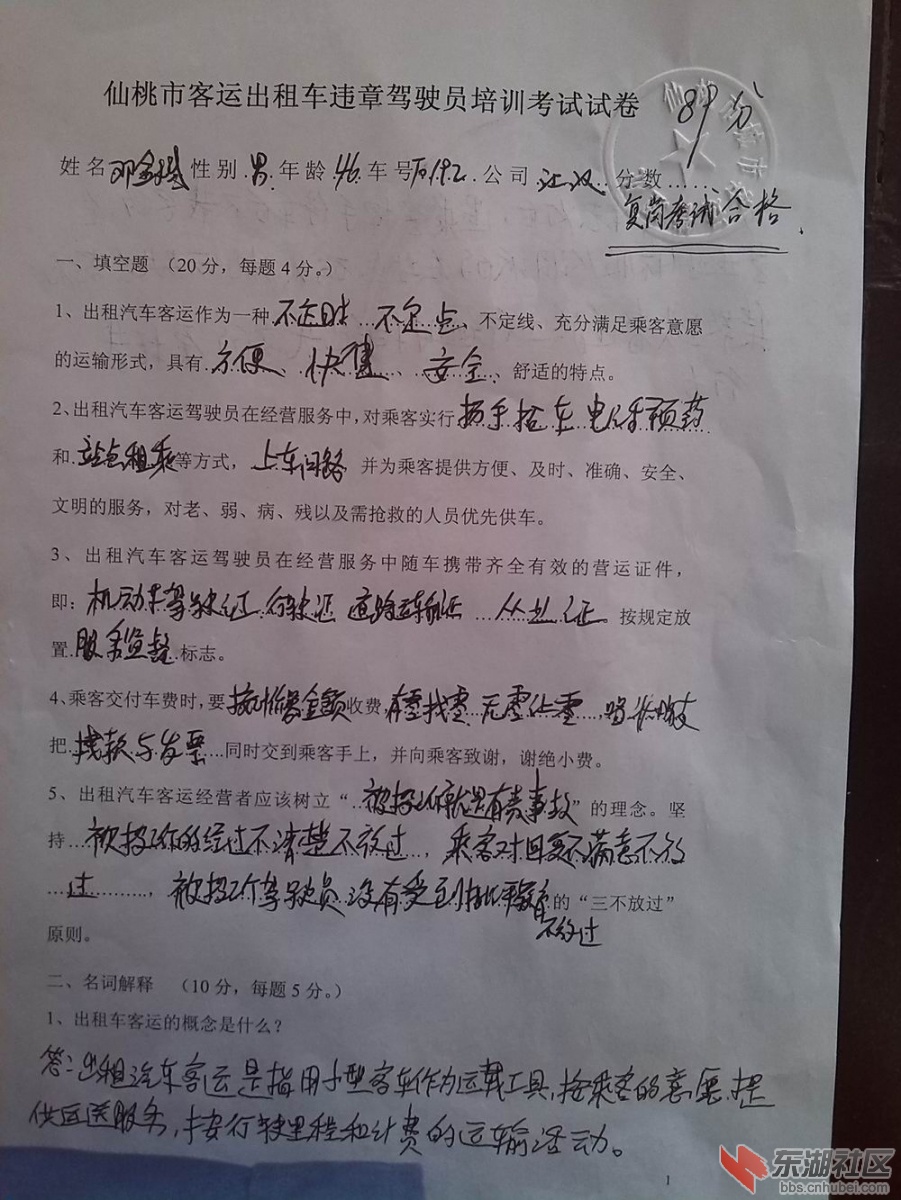 仙桃市客运出租车违章驾驶员培训考试试卷 89分
姓名 性别 男 年龄 46 车号 T0192 公司 江汉 分数
复岗考试合格
一、填空题 (20分，每题4分。)
1、出租汽车客运作为一种 不定时 不定点、不定线、充分满足乘客意愿
的运输形式，具有 方便、快捷、安全、舒适的特点。
2、出租汽车客运驾驶员在经营服务中，对乘客实行 扬手招车 电话预约
和 站点租乘 等方式， 上车问路 并为乘客提供方便、及时、准确、安全、
文明的服务，对老、弱、病、残以及需抢救的人员优先供车。
3、出租汽车客运驾驶员在经营服务中随车携带齐全有效的营运证件，
即：机动车驾驶证 行驶证 道路运输证 从业证。按规定放
置 服务监督 标志。
4、乘客交付车费时，要 按计价器金额 收费，有零找零 无零让零，
把 找款与发票 同时交到乘客手上，并向乘客致谢，谢绝小费。
5、出租汽车客运经营者应该树立“被投诉就是有责事故”的理念。坚
持 被投诉的经过不清楚不放过，乘客对回复不满意不放
过，被投诉驾驶员没有受到批评教育 的“三不放过”
不放过
原则。
二、名词解释 (10分，每题5分。)
1、出租车客运的概念是什么？
答：出租汽车客运是指用小型客车作为运载工具，按乘客的意愿提
供运送服务，按行驶里程和计费的运输活动。
1
东湖社区
bbs.cnhubei.com